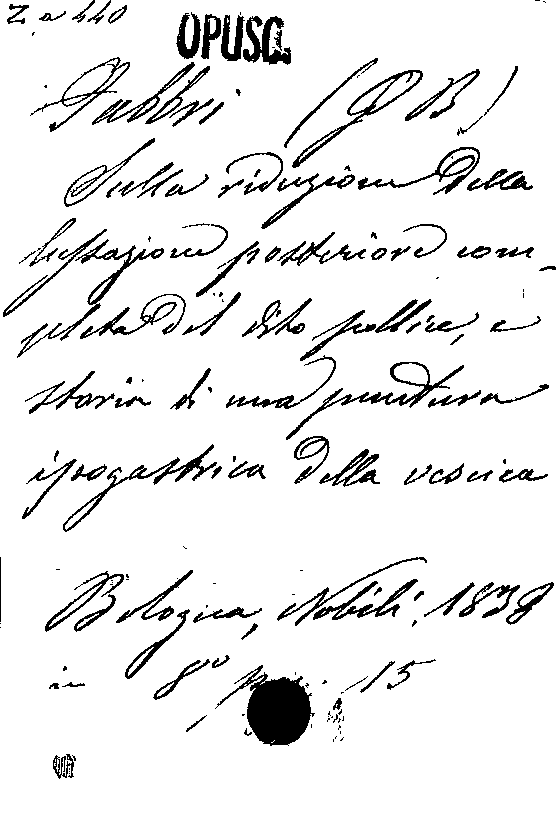 Z. a 440
OPUSC.
Fabbri (G B)
Sulla riduzione della
lussazione posteriore com-
pleta del dito pollice, e
storia di una puntura
ipogastrica della vescica
Bologna, Nobili, 1838
in 8º 15